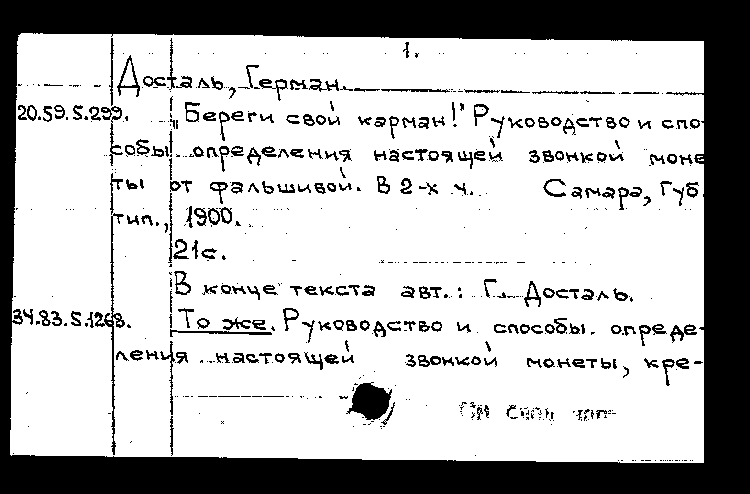 1.
Досталь, Герман.
20.59.5.299. „Береги свой карман!" Руководство и спо-
собы определения настоящей звонкой моне
ты от фальшивой. В 2-х ч. Самара, Губ.
тип., 1900.
21с.
В конце текста авт.: Г. Досталь.
34.83.5.1268. То же. Руководство и способы. опреде-
ления настоящей звонкой монеты, кре-